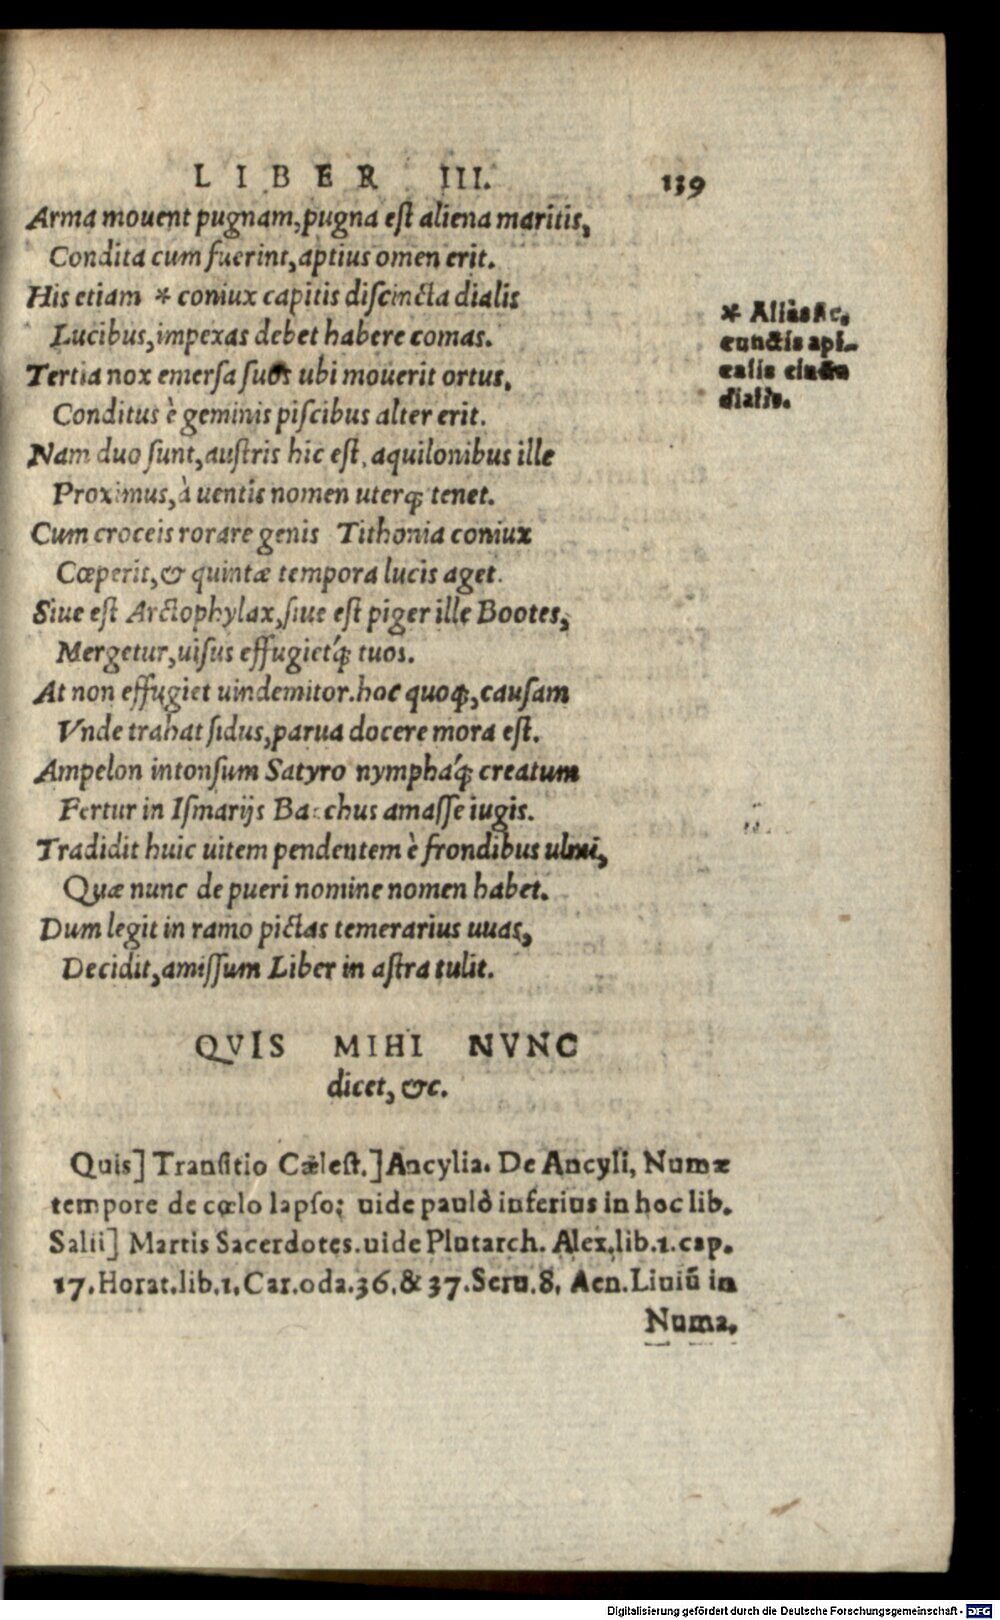 LIBER III. 139
Arma mouent pugnam, pugna est aliena maritis,
Condita cum fuerint, aptius omen erit.
His etiam * coniux capitis discincta dialis
Lucibus, impexas debet habere comas.
Tertia nox emersa suos ubi mouerit ortus,
Conditus è geminis piscibus alter erit.
Nam duo sunt, austris hic est, aquilonibus ille
Proximus, à uentis nomen uterq; tenet.
Cum croceis rorare genis Tithonia coniux
Cœperit, & quintæ tempora lucis aget.
Siue est Arctophylax, siue est piger ille Bootes,
Mergetur, uisus effugietq́; tuos.
At non effugiet uindemitor. hoc quoq;, causam
Vnde trahat sidus, parua docere mora est.
Ampelon intonsum Satyro nymphaq́; creatum
Fertur in Ismarijs Bacchus amasse iugis.
Tradidit huic uitem pendentem è frondibus ulmi,
Quæ nunc de pueri nomine nomen habet.
Dum legit in ramo pictas temerarius uuas,
Decidit, amissum Liber in astra tulit.
* Aliàs Ac,
cunctis api-
calis cincta
dialis.
QVIS MIHI NVNC
dicet, &c.
Quis] Transitio Cælest.] Ancylia. De Ancyli, Numæ
tempore de cœlo lapso; uide paulò inferius in hoc lib.
Salii] Martis Sacerdotes. uide Plutarch. Alex. lib. 1. cap.
17. Horat. lib. 1. Car. oda. 36. & 37. Seru. 8. Aen. Liuiū in
Numa.
Digitalisierung gefördert durch die Deutsche Forschungsgemeinschaft - DFG